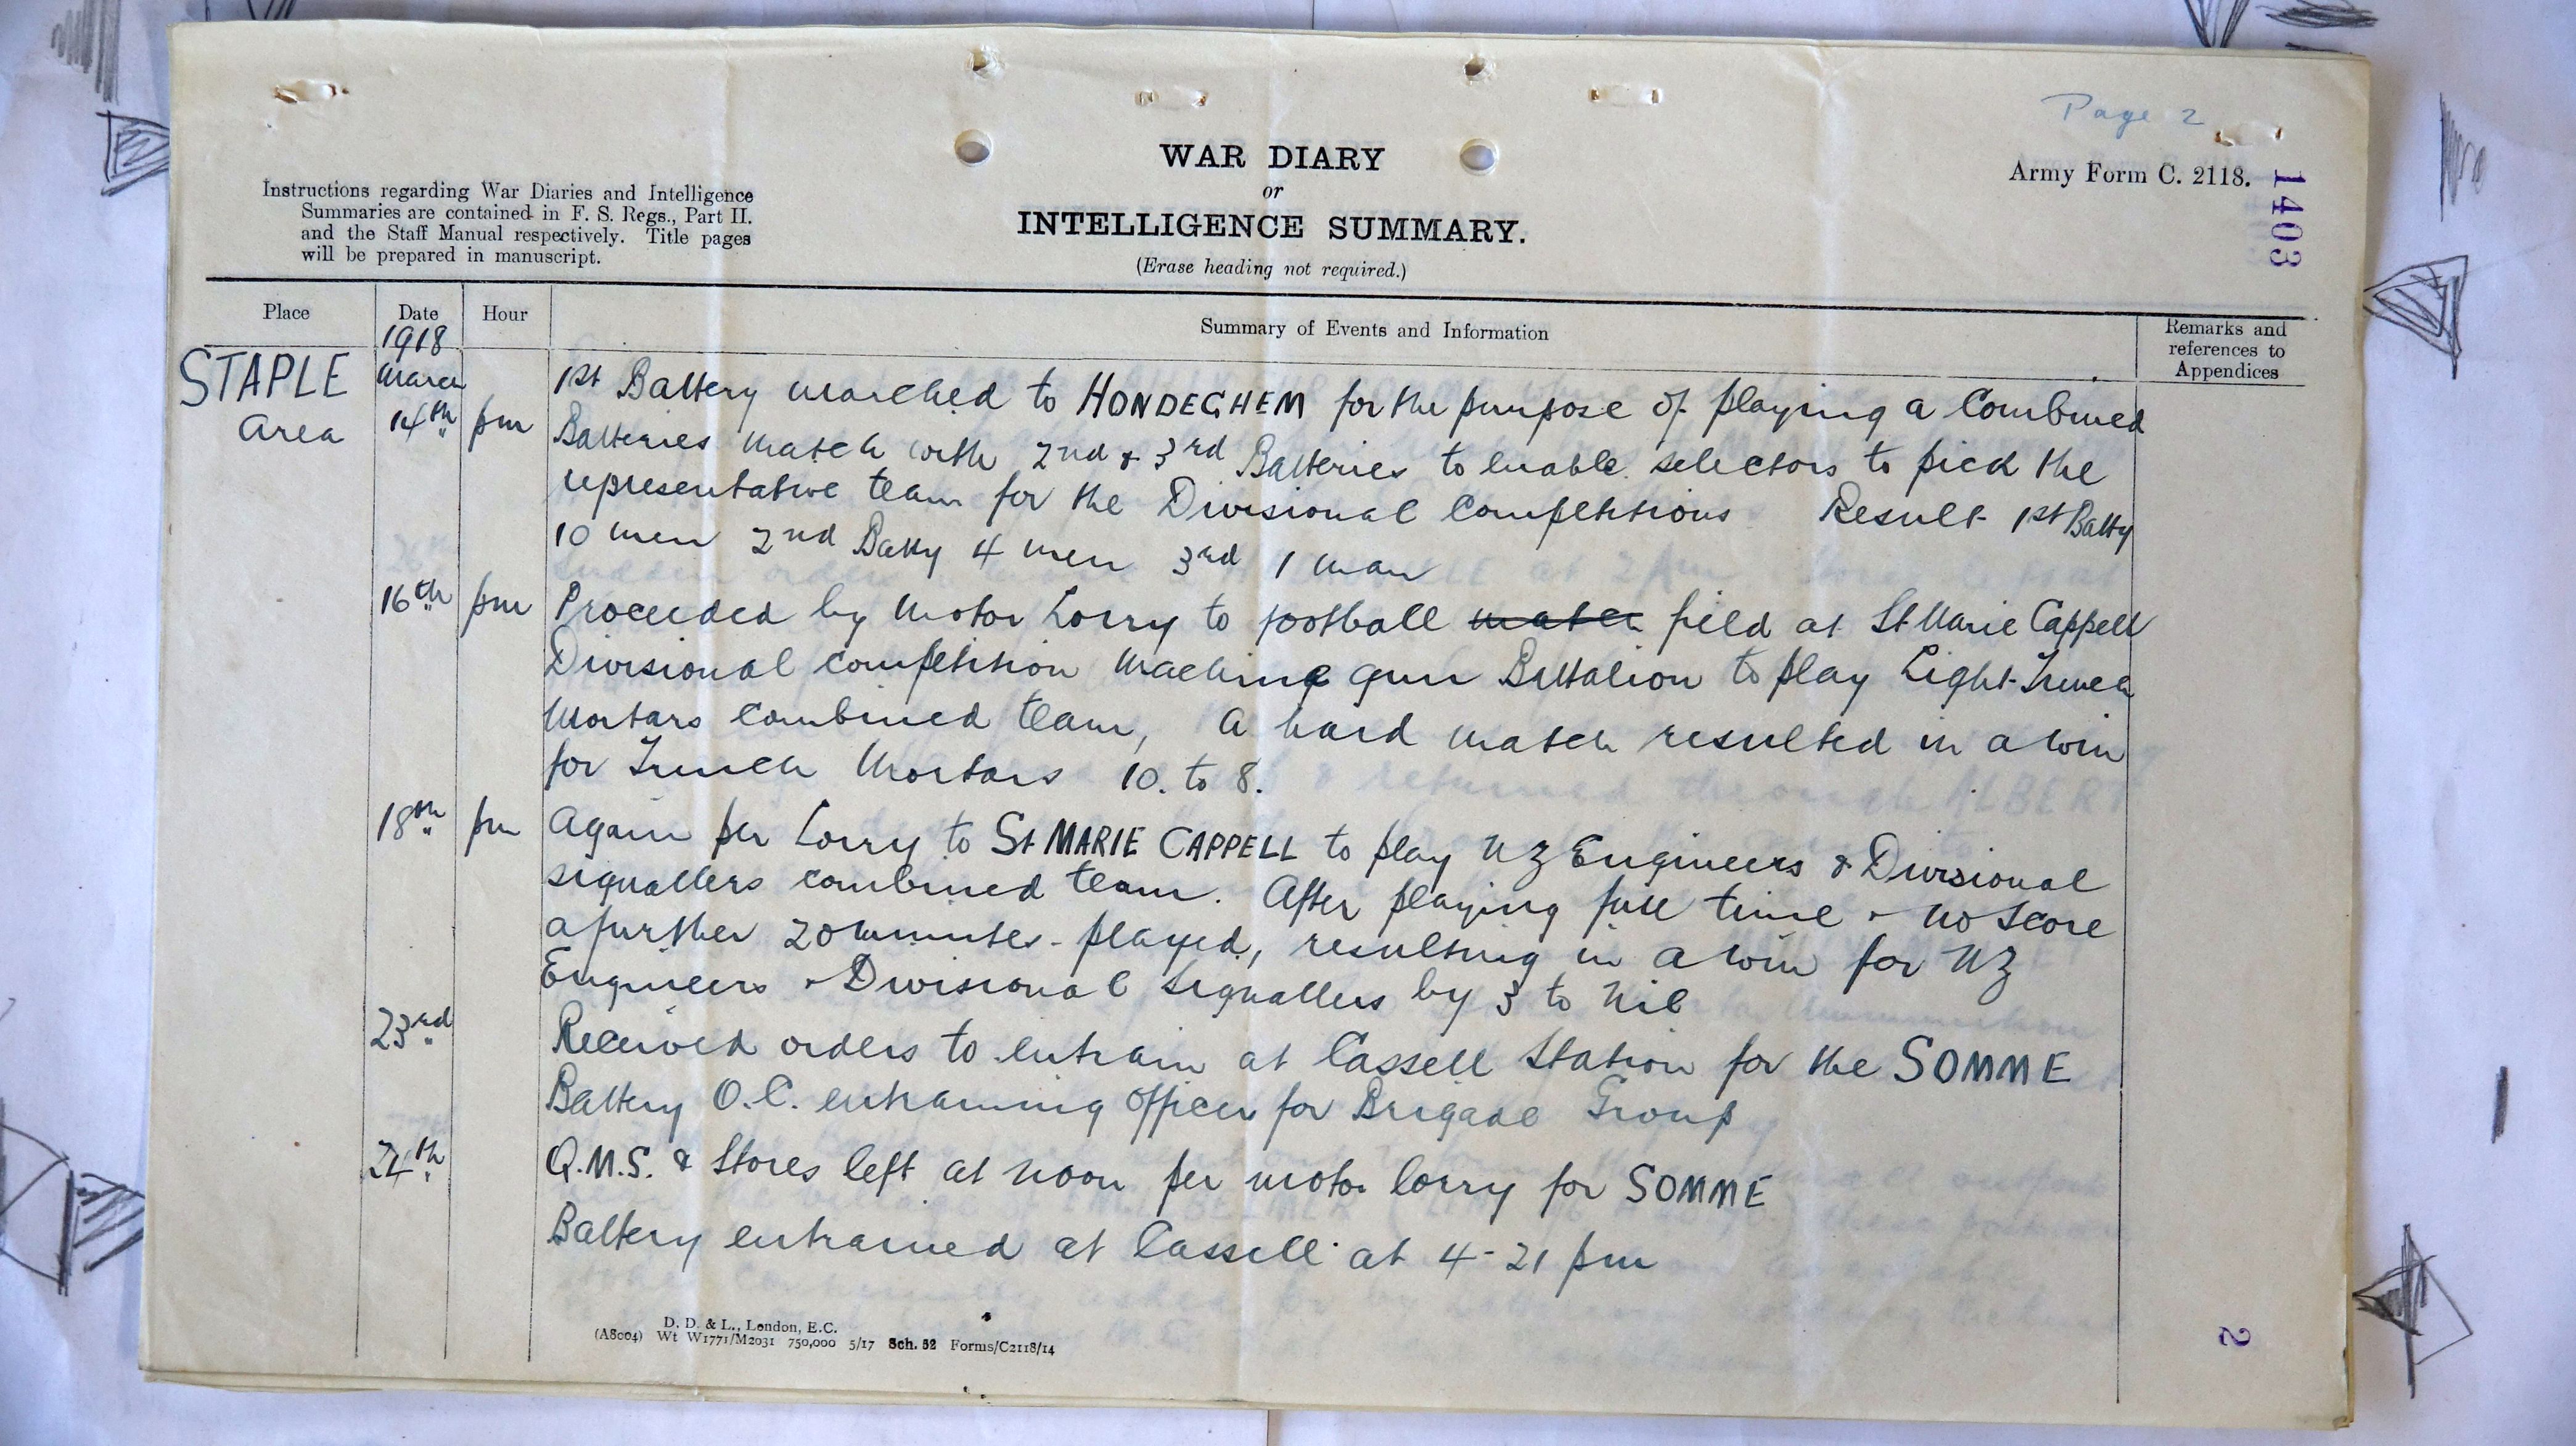 Page 2
Army Form C. 2118.
1403
WAR DIARY
or
INTELLIGENCE SUMMARY.
(Erase heading not required.)
Instructions regarding War Diaries and Intelligence
Summaries are contained in F. S. Regs., Part II.
and the Staff Manual respectively. Title pages
will be prepared in manuscript.
Place Date Hour Summary of Events and Information Remarks and
references to
Appendices
1918
STAPLE March 1st Battery marched to HONDEGHEM for the purpose of playing a Combined
Area 14th pm Batteries match with 2nd & 3rd Batteries to enable selectors to pick the
representative team for the Divisional Competitions Result 1st Batty
10 men 2nd Batty 4 men 3rd 1 man
16th pm Proceeded by Motor Lorry to football match field at St Marie Cappell
Divisional competition Machine gun Battalion to play Light Trench
Mortars combined team, A hard match resulted in a win
for Trench Mortars 10. to 8.
18th pm Again per Lorry to St MARIE CAPPELL to play NZ Engineers & Divisional
signallers combined team. After playing full time & no score
a further 20 minutes played, resulting in a win for NZ
Engineers & Divisional Signallers by 3 to Nil
23rd Received orders to entrain at Cassell Station for the SOMME
Battery O.C. entraining officer for Brigade Group
24th Q.M.S. & Stores left at noon per motor lorry for SOMME
Battery entrained at Cassell at 4-21 pm
D. D. & L., London, E.C.
(A8004) Wt W1771/M2031 750,000 5/17 Sch. 52 Forms/C2118/14
2